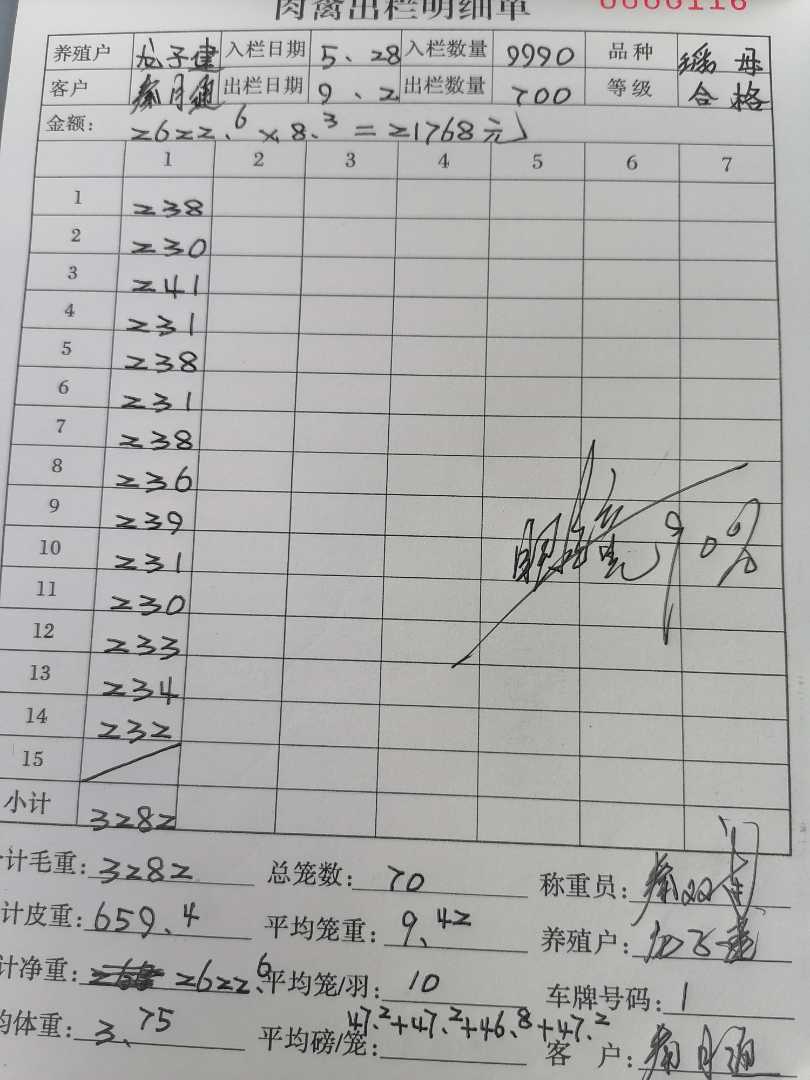 肉禽出栏明细单 0000116
养殖户 龙子建 入栏日期 5、28 入栏数量 9990 品种 瑶母
客户 秦月通 出栏日期 9、2 出栏数量 700 等级 合格
金额: 2622.6×8.3=21768元
1 2 3 4 5 6 7
1 238
2 230
3 241
4 231
5 238
6 231
7 238
8 236
9 239
10 231
11 230
12 233
13 234
14 232
15
90%
小计 3282
计毛重: 3282 总笼数: 70 称重员:
计皮重: 659.4 平均笼重: 9.42 养殖户:
计净重: 2622.6 平均笼/羽: 10 车牌号码: 1
均体重: 3.75 平均磅/笼: 47.2+47.2+46.8+47.2 客户: 秦月通